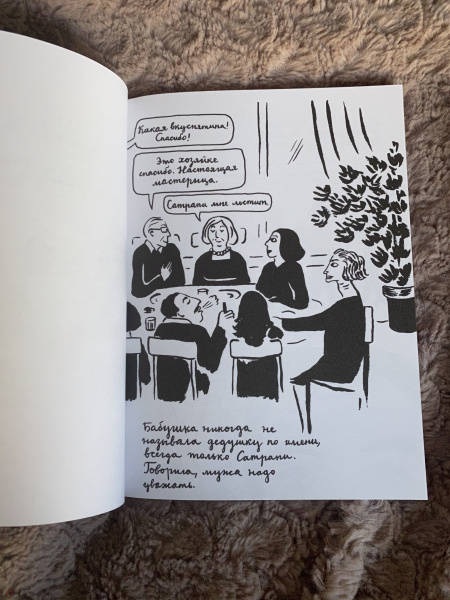 Какая вкуснятина!
Спасибо!
Это хозяйке
спасибо. Настоящая
мастерица.
Сатрапи мне льстит
Бабушка никогда не
называла дедушку по имени,
всегда только Сатрапи.
Говорила, мужа надо
уважать.